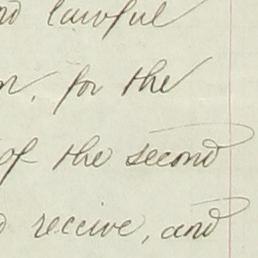 lawful
for the
of the second
receive, and